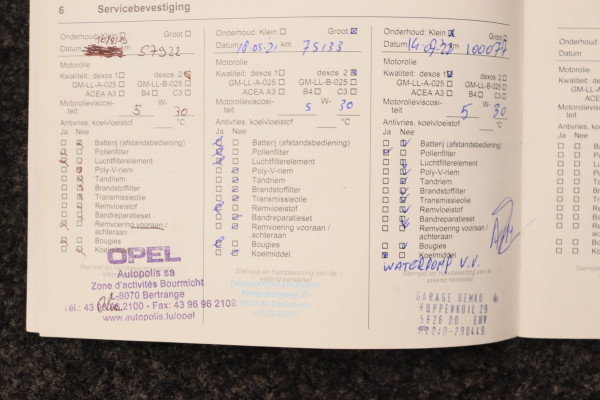 6 Servicebevestiging
Onderhoud: Klein Groot
Datum km 57922
Motorolie
Kwaliteit: dexos 1 dexos 2
GM-LL-A-025 GM-LL-B-025
ACEA A3 B4 C3
Motorolieviscosi- W-
teit 5 30
Antivries, koelvloeistof °C
Ja Nee
Batterij (afstandsbediening)
Pollenfilter
Luchtfilterelement
Poly-V-riem
Tandriem
Brandstoffilter
Transmissieolie
Remvloeistof
Bandreparatieset
Remvoering vooraan /
achteraan
Bougies
Koelmiddel
Stempel en
OPEL
Autopolis sa
Zone d'activités Bourmicht
L-8070 Bertrange
2100 - Fax: 43 96 96 2109
www.autopolis.lu/opel
Onderhoud: Klein Groot
Datum 18.05.21 km 75133
Motorolie
Kwaliteit: dexos 1 dexos 2
GM-LL-A-025 GM-LL-B-025
ACEA A3 B4 C3
Motorolieviscosi- W-
teit 5 30
Antivries, koelvloeistof °C
Ja Nee
Batterij (afstandsbediening)
Pollenfilter
Luchtfilterelement
Poly-V-riem
Tandriem
Brandstoffilter
Transmissieolie
Remvloeistof
Bandreparatieset
Remvoering vooraan /
achteraan
Bougies
Koelmiddel
Stempel en handtekening van de
erkend hersteller
Onderhoud: Klein Groot
Datum 14.09.22 km 100074
Motorolie
Kwaliteit: dexos 1 dexos 2
GM-LL-A-025 GM-LL-B-025
ACEA A3 B4 C3
Motorolieviscosi- W-
teit 5 30
Antivries, koelvloeistof °C
Ja Nee
Batterij (afstandsbediening)
Pollenfilter
Luchtfilterelement
Poly-V-riem
Tandriem
Brandstoffilter
Transmissieolie
Remvloeistof
Bandreparatieset
Remvoering vooraan /
achteraan
Bougies
Koelmiddel
WATERPOMP V.V.
Stempel en handtekening van de
erkend hersteller
GARAGE REMKO
HOPPENKUIL 29
5626 DD EHV
040-290449
Onderhoud:
Datum
Motorolie
Kwaliteit:
GM-LL
AC
teit
Antivries,
Ja Nee